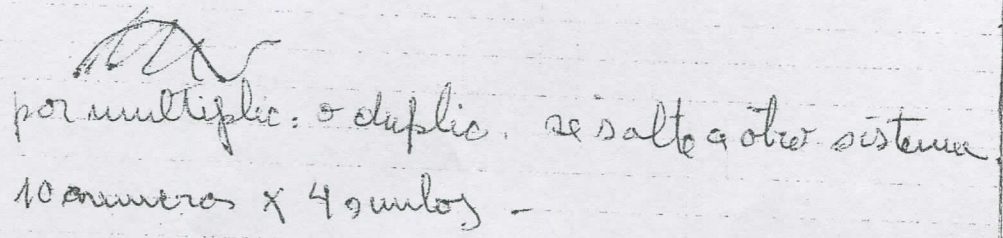 por multiplic. o duplic. se salta a otro sistema
10 numeros x 4